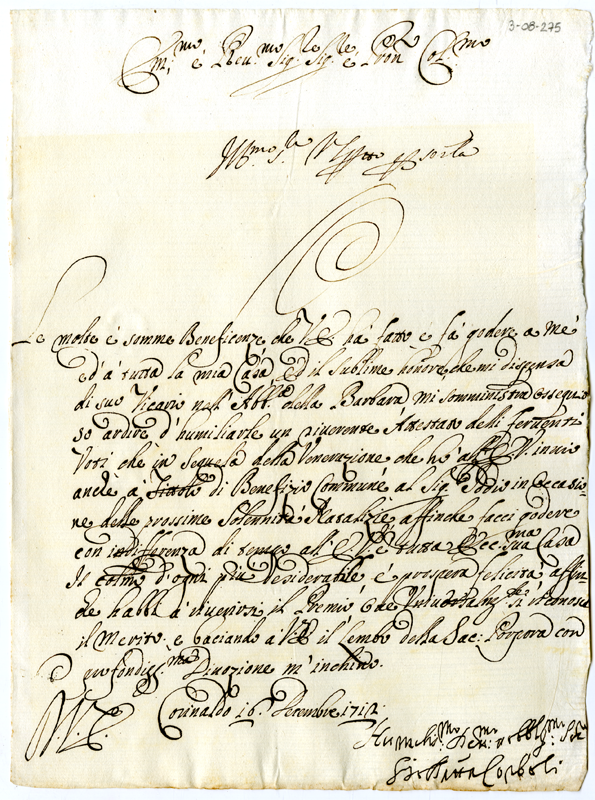 3-08-275
Em.mo e Rev.mo Sig.re Sig.re e Pron Col.mo
Le molte e somme Beneficenze che V.E. ha fatto e fa godere a me
ed a tutta la mia Casa, ed il sublime honore, che mi dispensa
di suo Vicario nell' Abb.a della Barbara mi somministra ossequio
so ardire d'humiliarle un riverente Attestato delli ferventi
Voti che in sequela della Venerazione che ho all' E.V. invio
anche a di Benefizio Commune al Sig. Iddio in occasio
ne delle prossime Solennità Natalizie affinche facci godere
con indifferenza di tempo all' E.V. e tutta Ecc.ma sua Casa
Il colmo d'ogni più desiderabile e prospera felicità affin
che habbi a il Premio che si riconosce
il Merito e baciando a V.E. il lembo della Sac: Porpora con
profondiss.ma Divozione m'inchino.
Corinaldo 16 Decembre 1712
Humiliss.mo Dev.mo Obblig.mo Ser.e
Gio Batta